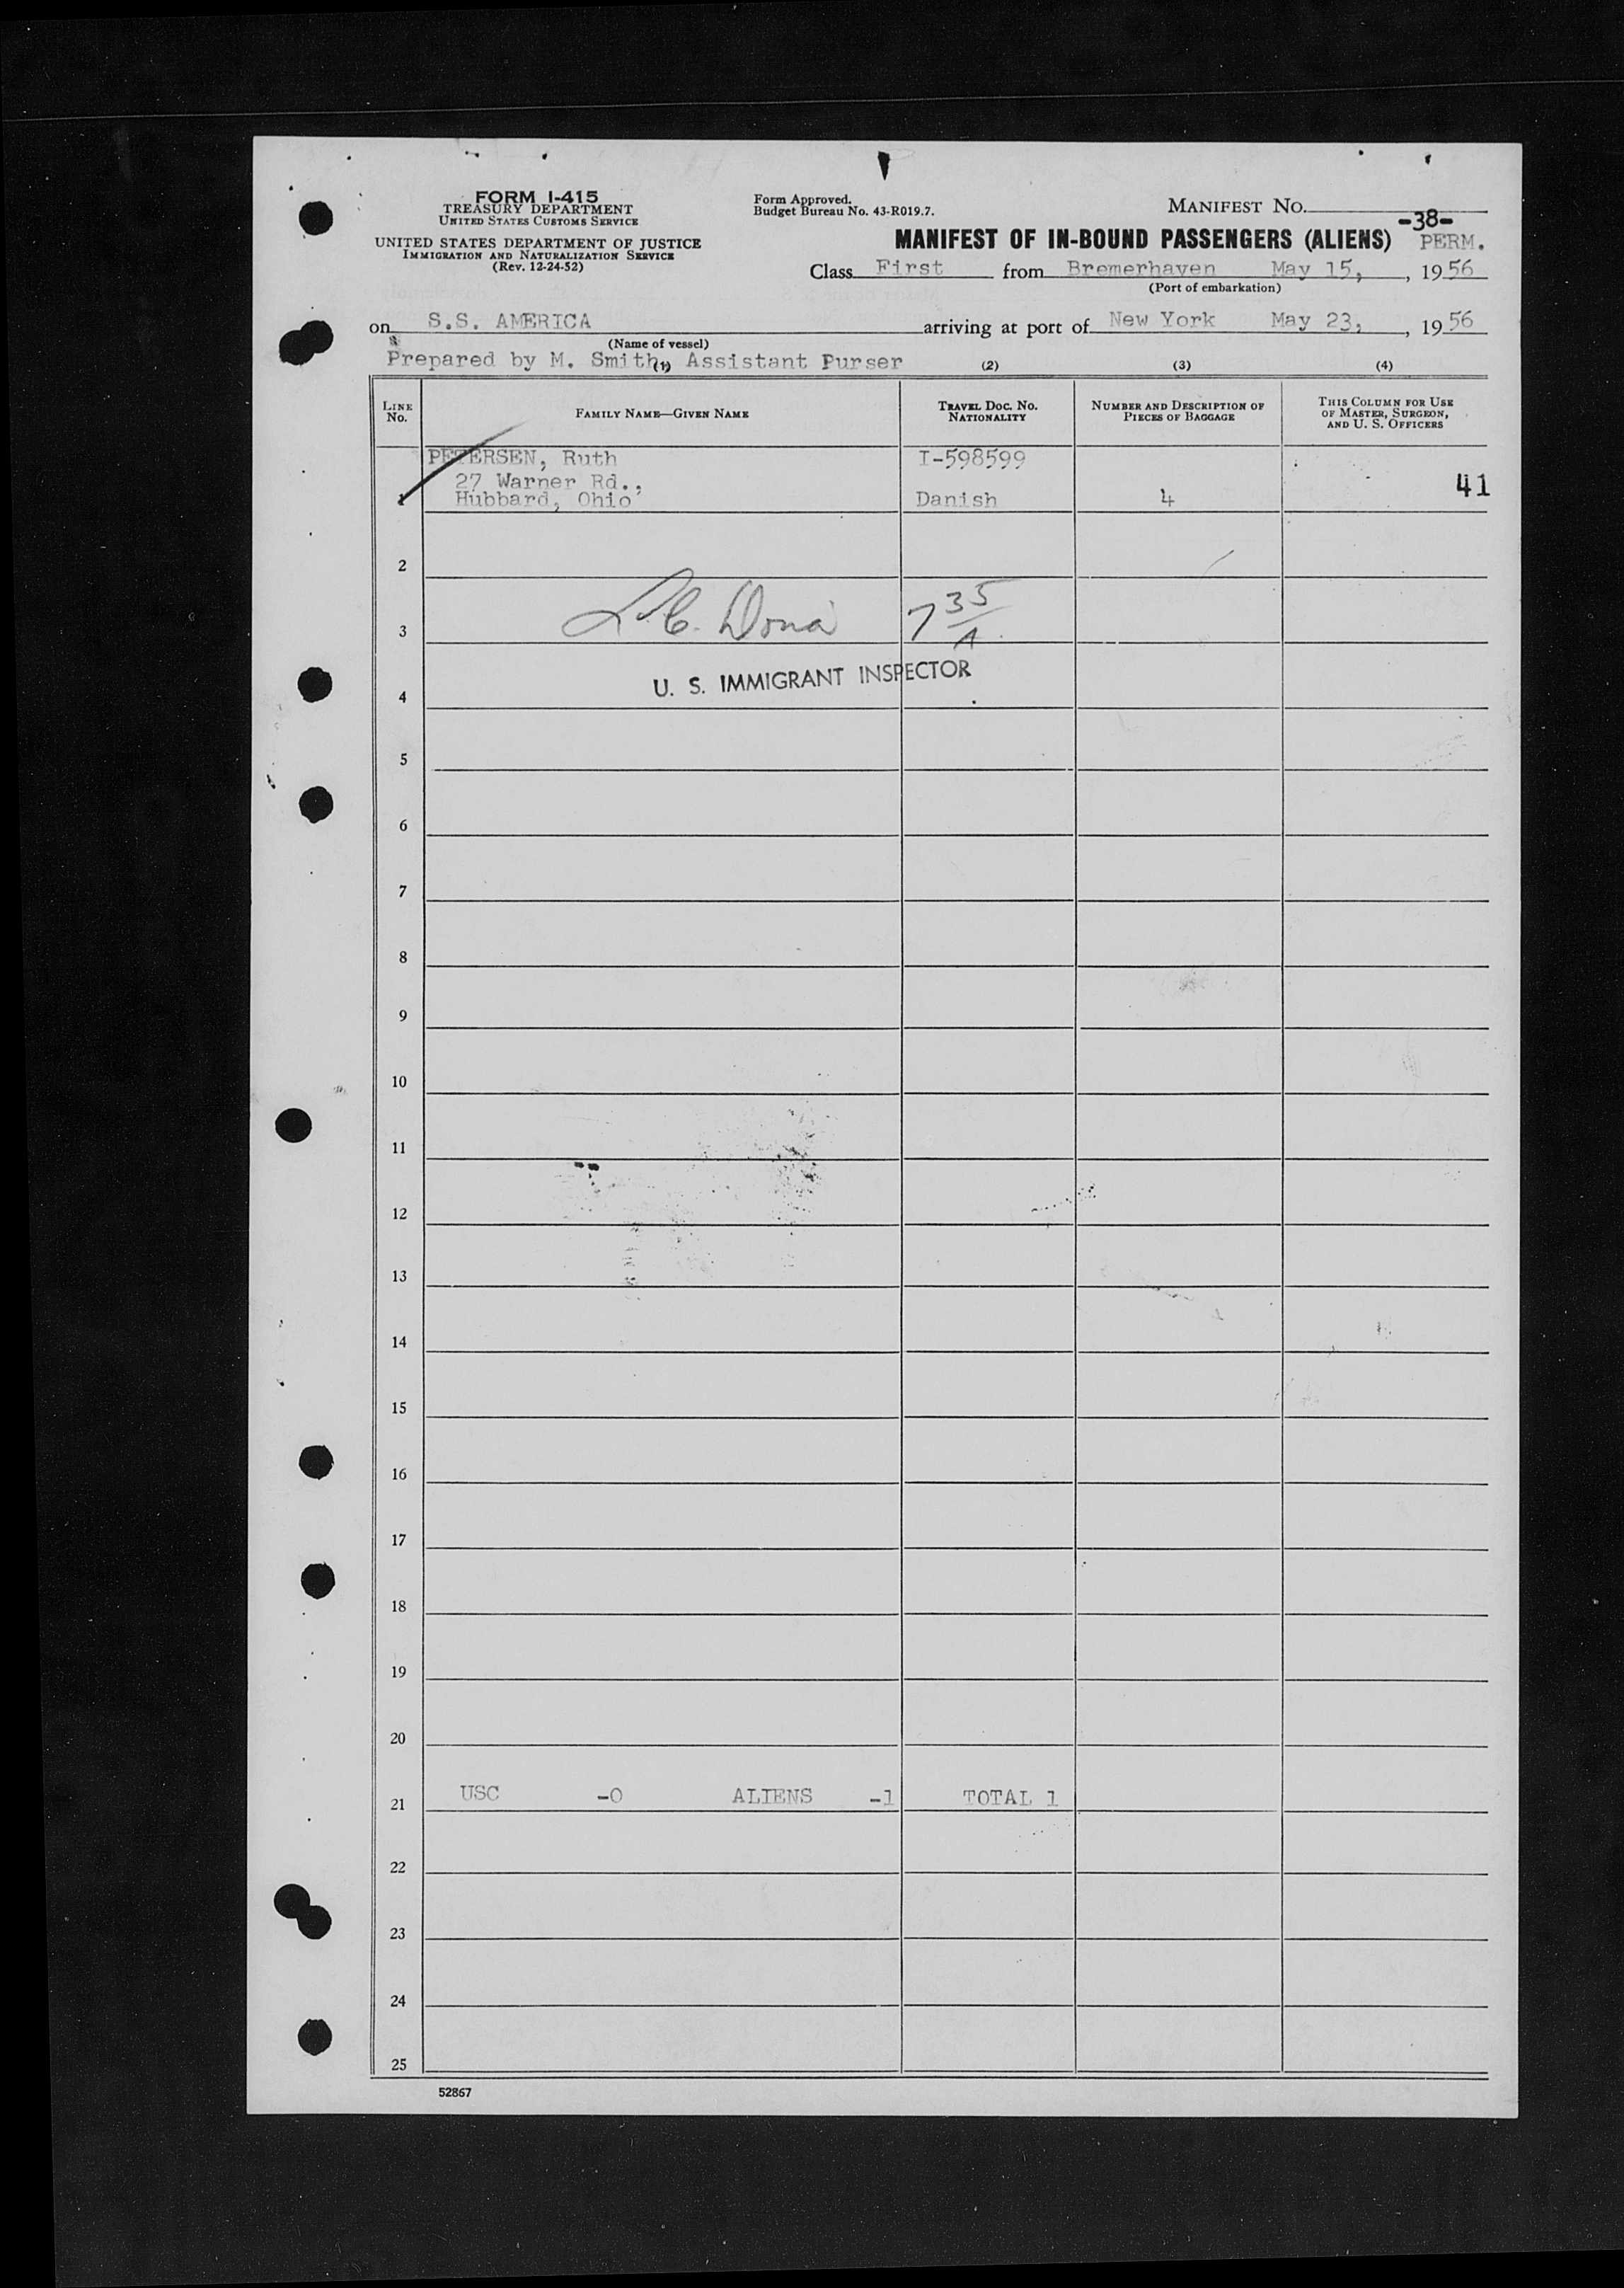 FORM I-415
TREASURY DEPARTMENT
UNITED STATES CUSTOMS SERVICE
UNITED STATES DEPARTMENT OF JUSTICE
IMMIGRATION AND NATURALIZATION SERVICE
(Rev. 12-24-52)
Form Approved.
Budget Bureau No. 43-R019.7.
MANIFEST NO.
-38-
MANIFEST OF IN-BOUND PASSENGERS (ALIENS) PERM.
Class First from Bremerhaven May 15, , 19 56
(Port of embarkation)
on S.S. AMERICA arriving at port of New York May 23, , 19 56
(Name of vessel)
Prepared by M. Smith, Assistant Purser
(1) (2) (3) (4)
LINE No. FAMILY NAME—GIVEN NAME TRAVEL DOC. NO. NATIONALITY NUMBER AND DESCRIPTION OF PIECES OF BAGGAGE THIS COLUMN FOR USE OF MASTER, SURGEON, AND U. S. OFFICERS
PETERSEN, Ruth I-598599
27 Warner Rd.,
1 Hubbard, Ohio Danish 4 41
2
3 7 35/A
4 U. S. IMMIGRANT INSPECTOR
5
6
7
8
9
10
11
12
13
14
15
16
17
18
19
20
21 USC -0 ALIENS -1 TOTAL 1
22
23
24
25
52867